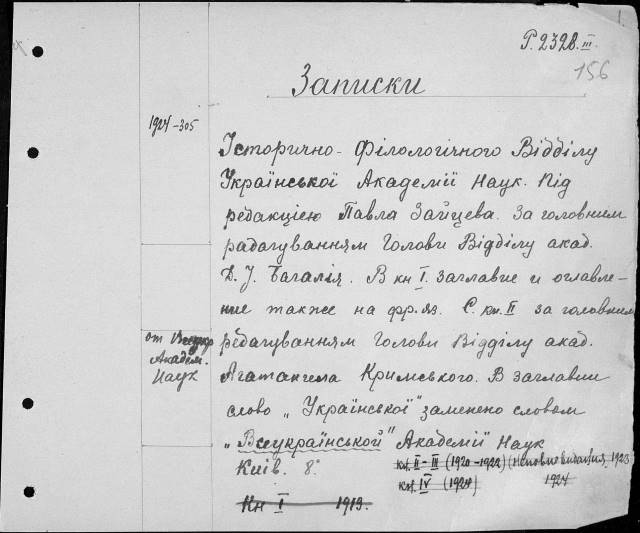 1.
P. 232в. III
156
Записки
1924-305
Історично-Філологічного Відділу
Української Академії Наук. Під
редакцією Павла Зайцева. За головним
радагуванням Голови Відділу акад.
Д. І. Багалія. В кн I. заглавие и оглавле-
ние также на фр. яз. С. кн. II за головним
редагуванням Голови Відділу акад.
Агатангела Кримського. В заглавии
слово „Української" заменено словом
„Всеукраїнської" Академії Наук
Київ. 8°
кн. II - III (1920-1922) 1923
кн. IV (1924) 1924
Кн I 1919.
от Всеукр
Академ.
Наук